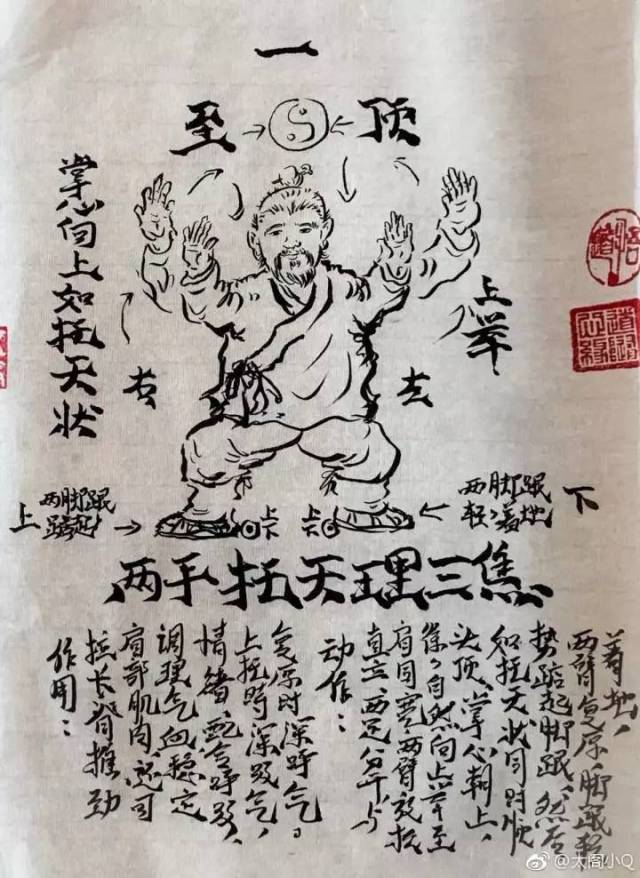 一
至 顶
掌心向上如托天状
上举
右
左
上
两脚跟
踮起
两脚跟
轻着地
下
两手托天理三焦
作用：
拉长脊推动
肩部肌肉，还可
调理气血稳定
情绪，配合呼吸，
上托时深吸气，
复原时深呼气。
动作：
直立，两足分开与
肩同宽，两臂放松
自然向上举至
头顶、掌心朝上，
如托天状同时顺
势踮起脚跟，然后
两臂复原，脚跟轻
着地，
@太阁小Q